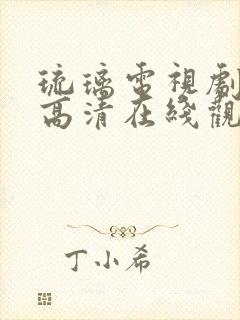 琉璃電視劇
高清在綫觀
丁小希